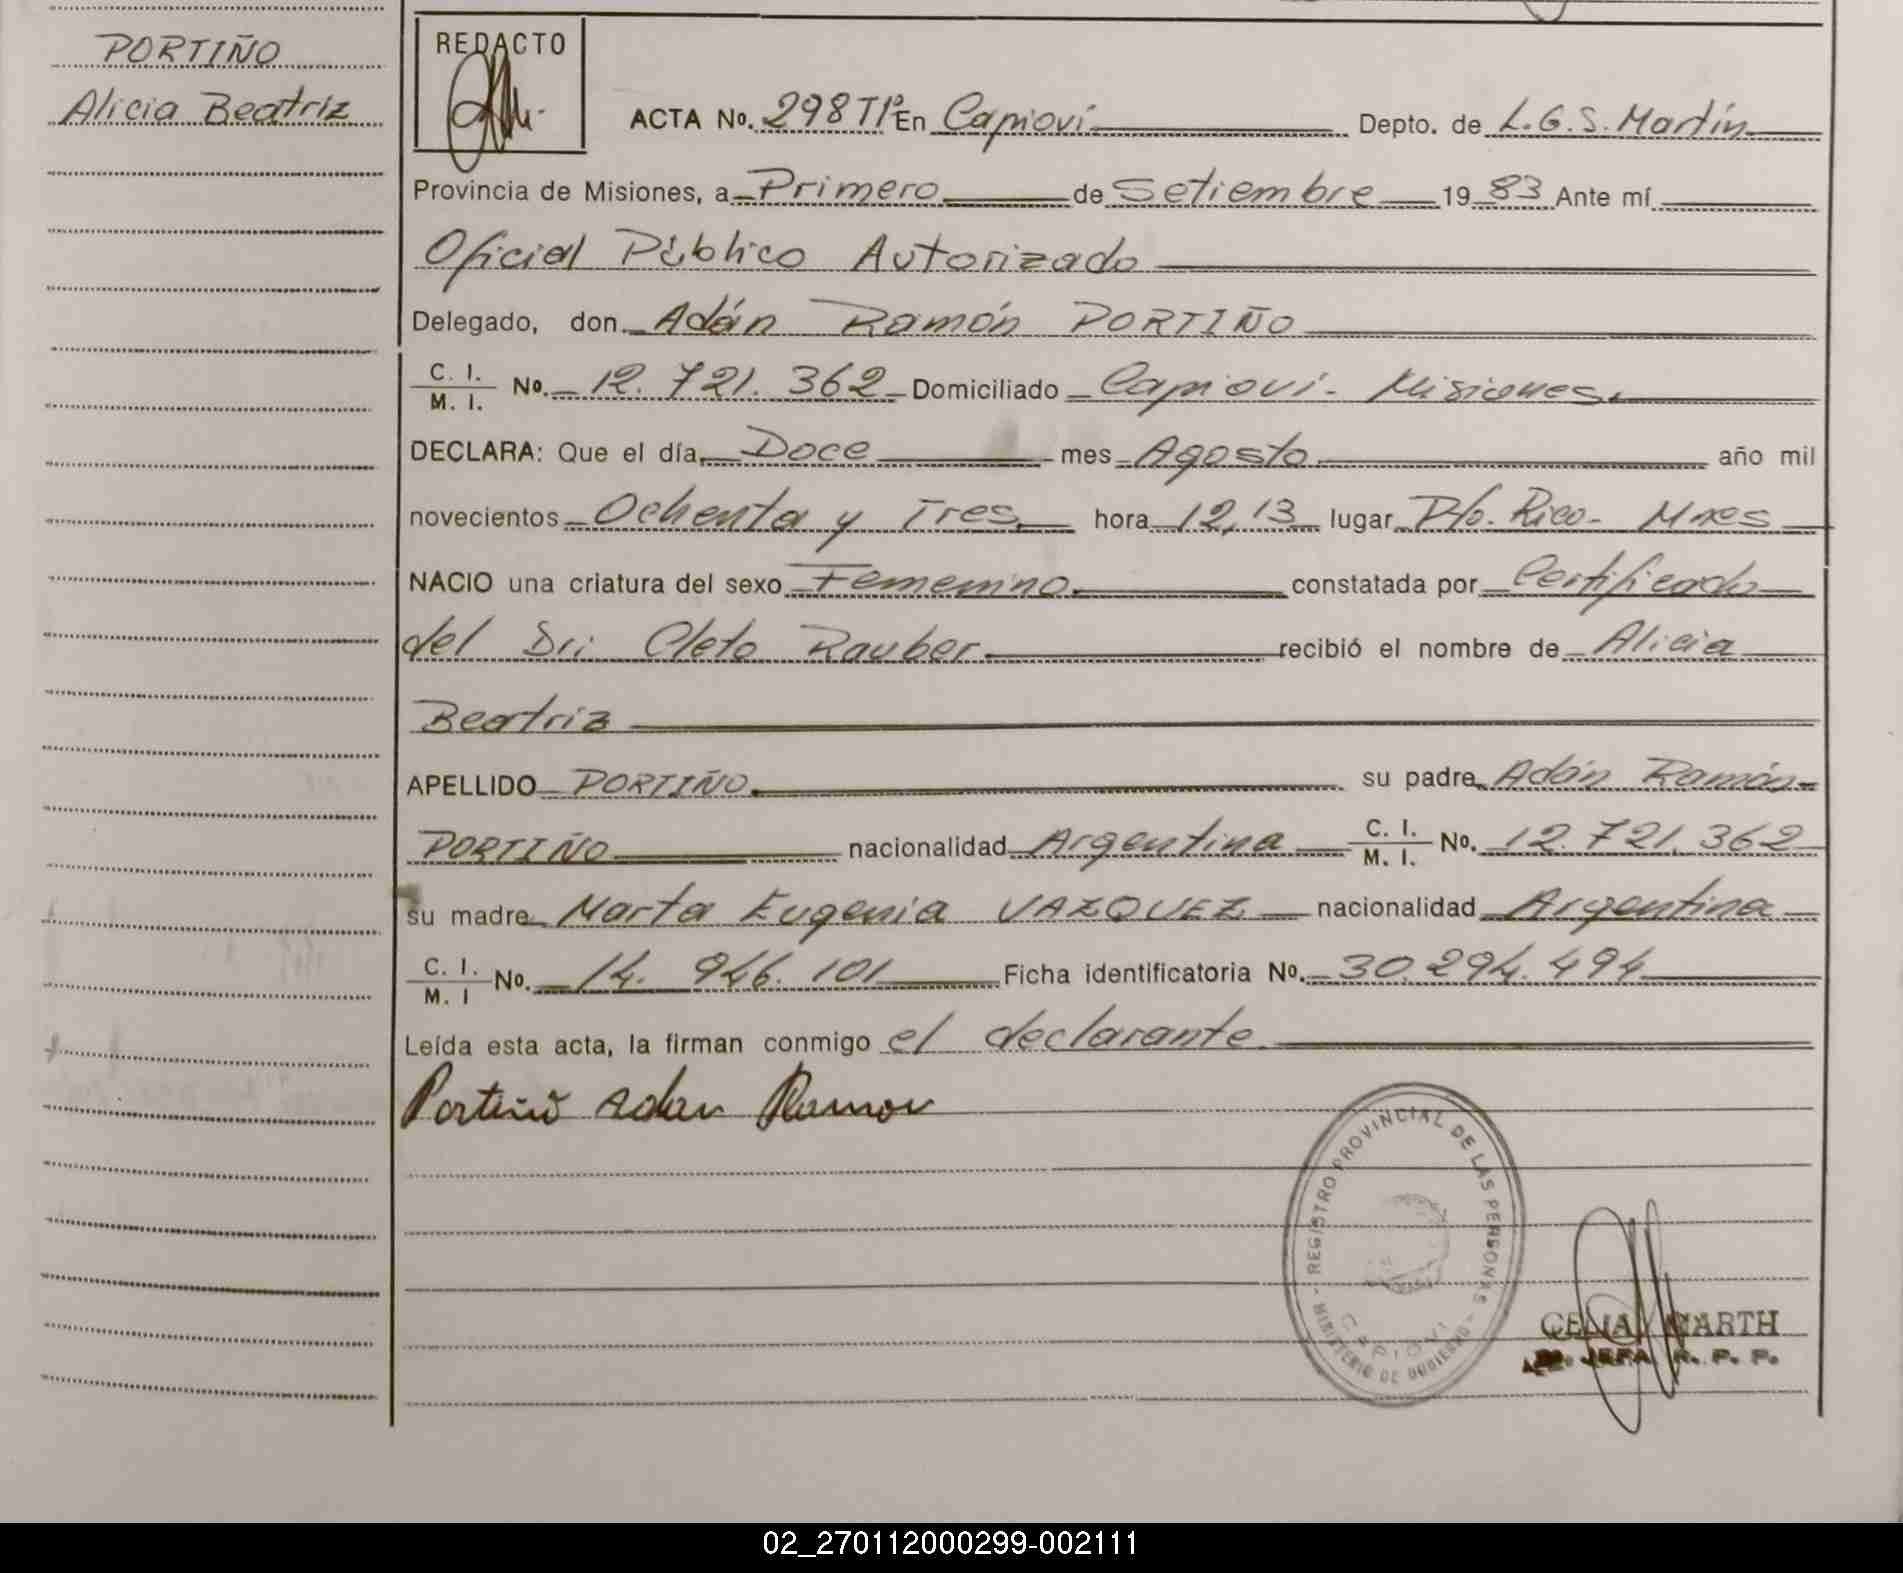 PORTIÑO
Alicia Beatriz
REDACTO
ACTA No. 298 Tº Iº En Capioví Depto. de L.G.S. Martín
Provincia de Misiones, a Primero de Setiembre 1983 Ante mí
Oficial Público Autorizado
Delegado, don Adán Ramón PORTIÑO
C. I. / M. I. No. 12.721.362 Domiciliado Capioví - Misiones.
DECLARA: Que el día Doce mes Agosto año mil
novecientos Ochenta y Tres hora 12,13 lugar Pto. Rico - Mnes
NACIO una criatura del sexo Femenino constatada por Certificado
del Dr: Cleto Rauber recibió el nombre de Alicia
Beatriz
APELLIDO PORTIÑO su padre Adán Ramón
PORTIÑO nacionalidad Argentina C. I. / M. I. No. 12.721.362
su madre Marta Eugenia VAZQUEZ nacionalidad Argentina
C. I. / M. I No. 14.946.101 Ficha identificatoria No. 30.294.494
Leída esta acta, la firman conmigo el declarante
Portiño Adan Ramon
REGISTRO PROVINCIAL DE LAS PERSONAS
MINISTERIO DE GOBIERNO
CAPIOVI
MARTH
JEFA R. P. P.
02_270112000299-002111